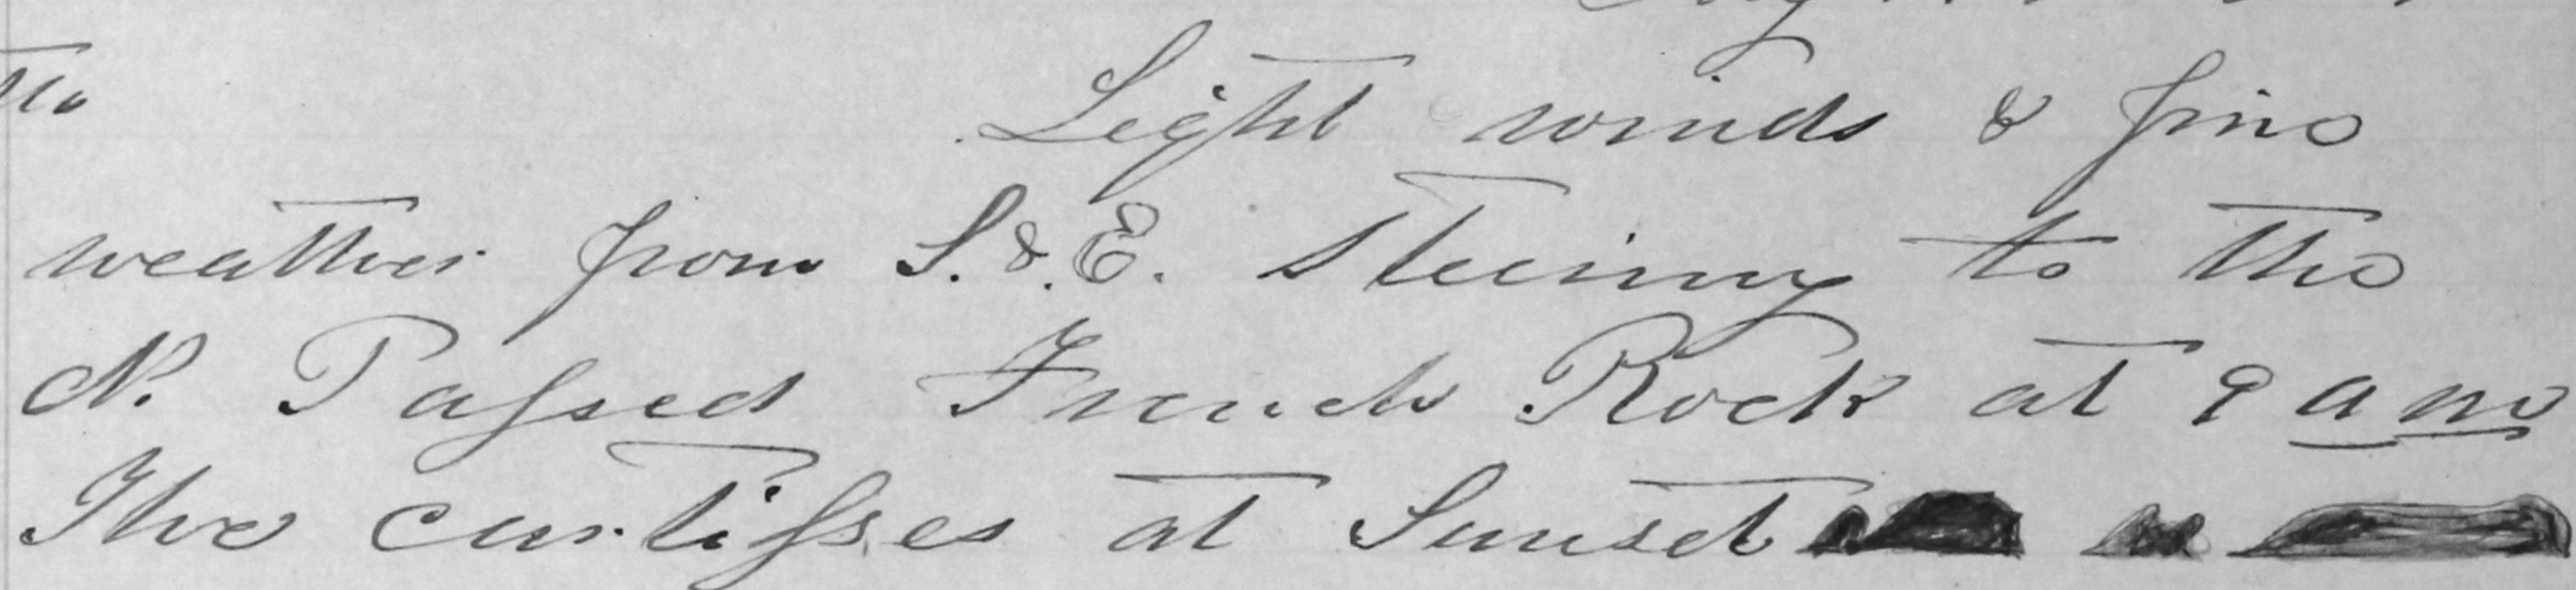 Light winds & fine
weather from S. & E. Steering to the
N. Passed French Rock at 9 am
The curtisses at Sunset